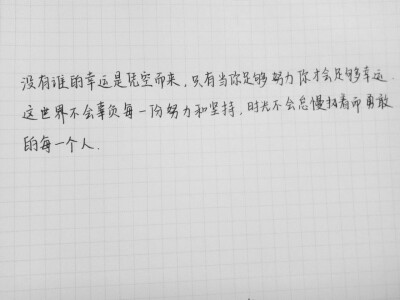 没有谁的幸运是凭空而来，只有当你足够努力你才会足够幸运.
这世界不会辜负每一份努力和坚持，时光不会怠慢执着而勇敢
的每一个人.